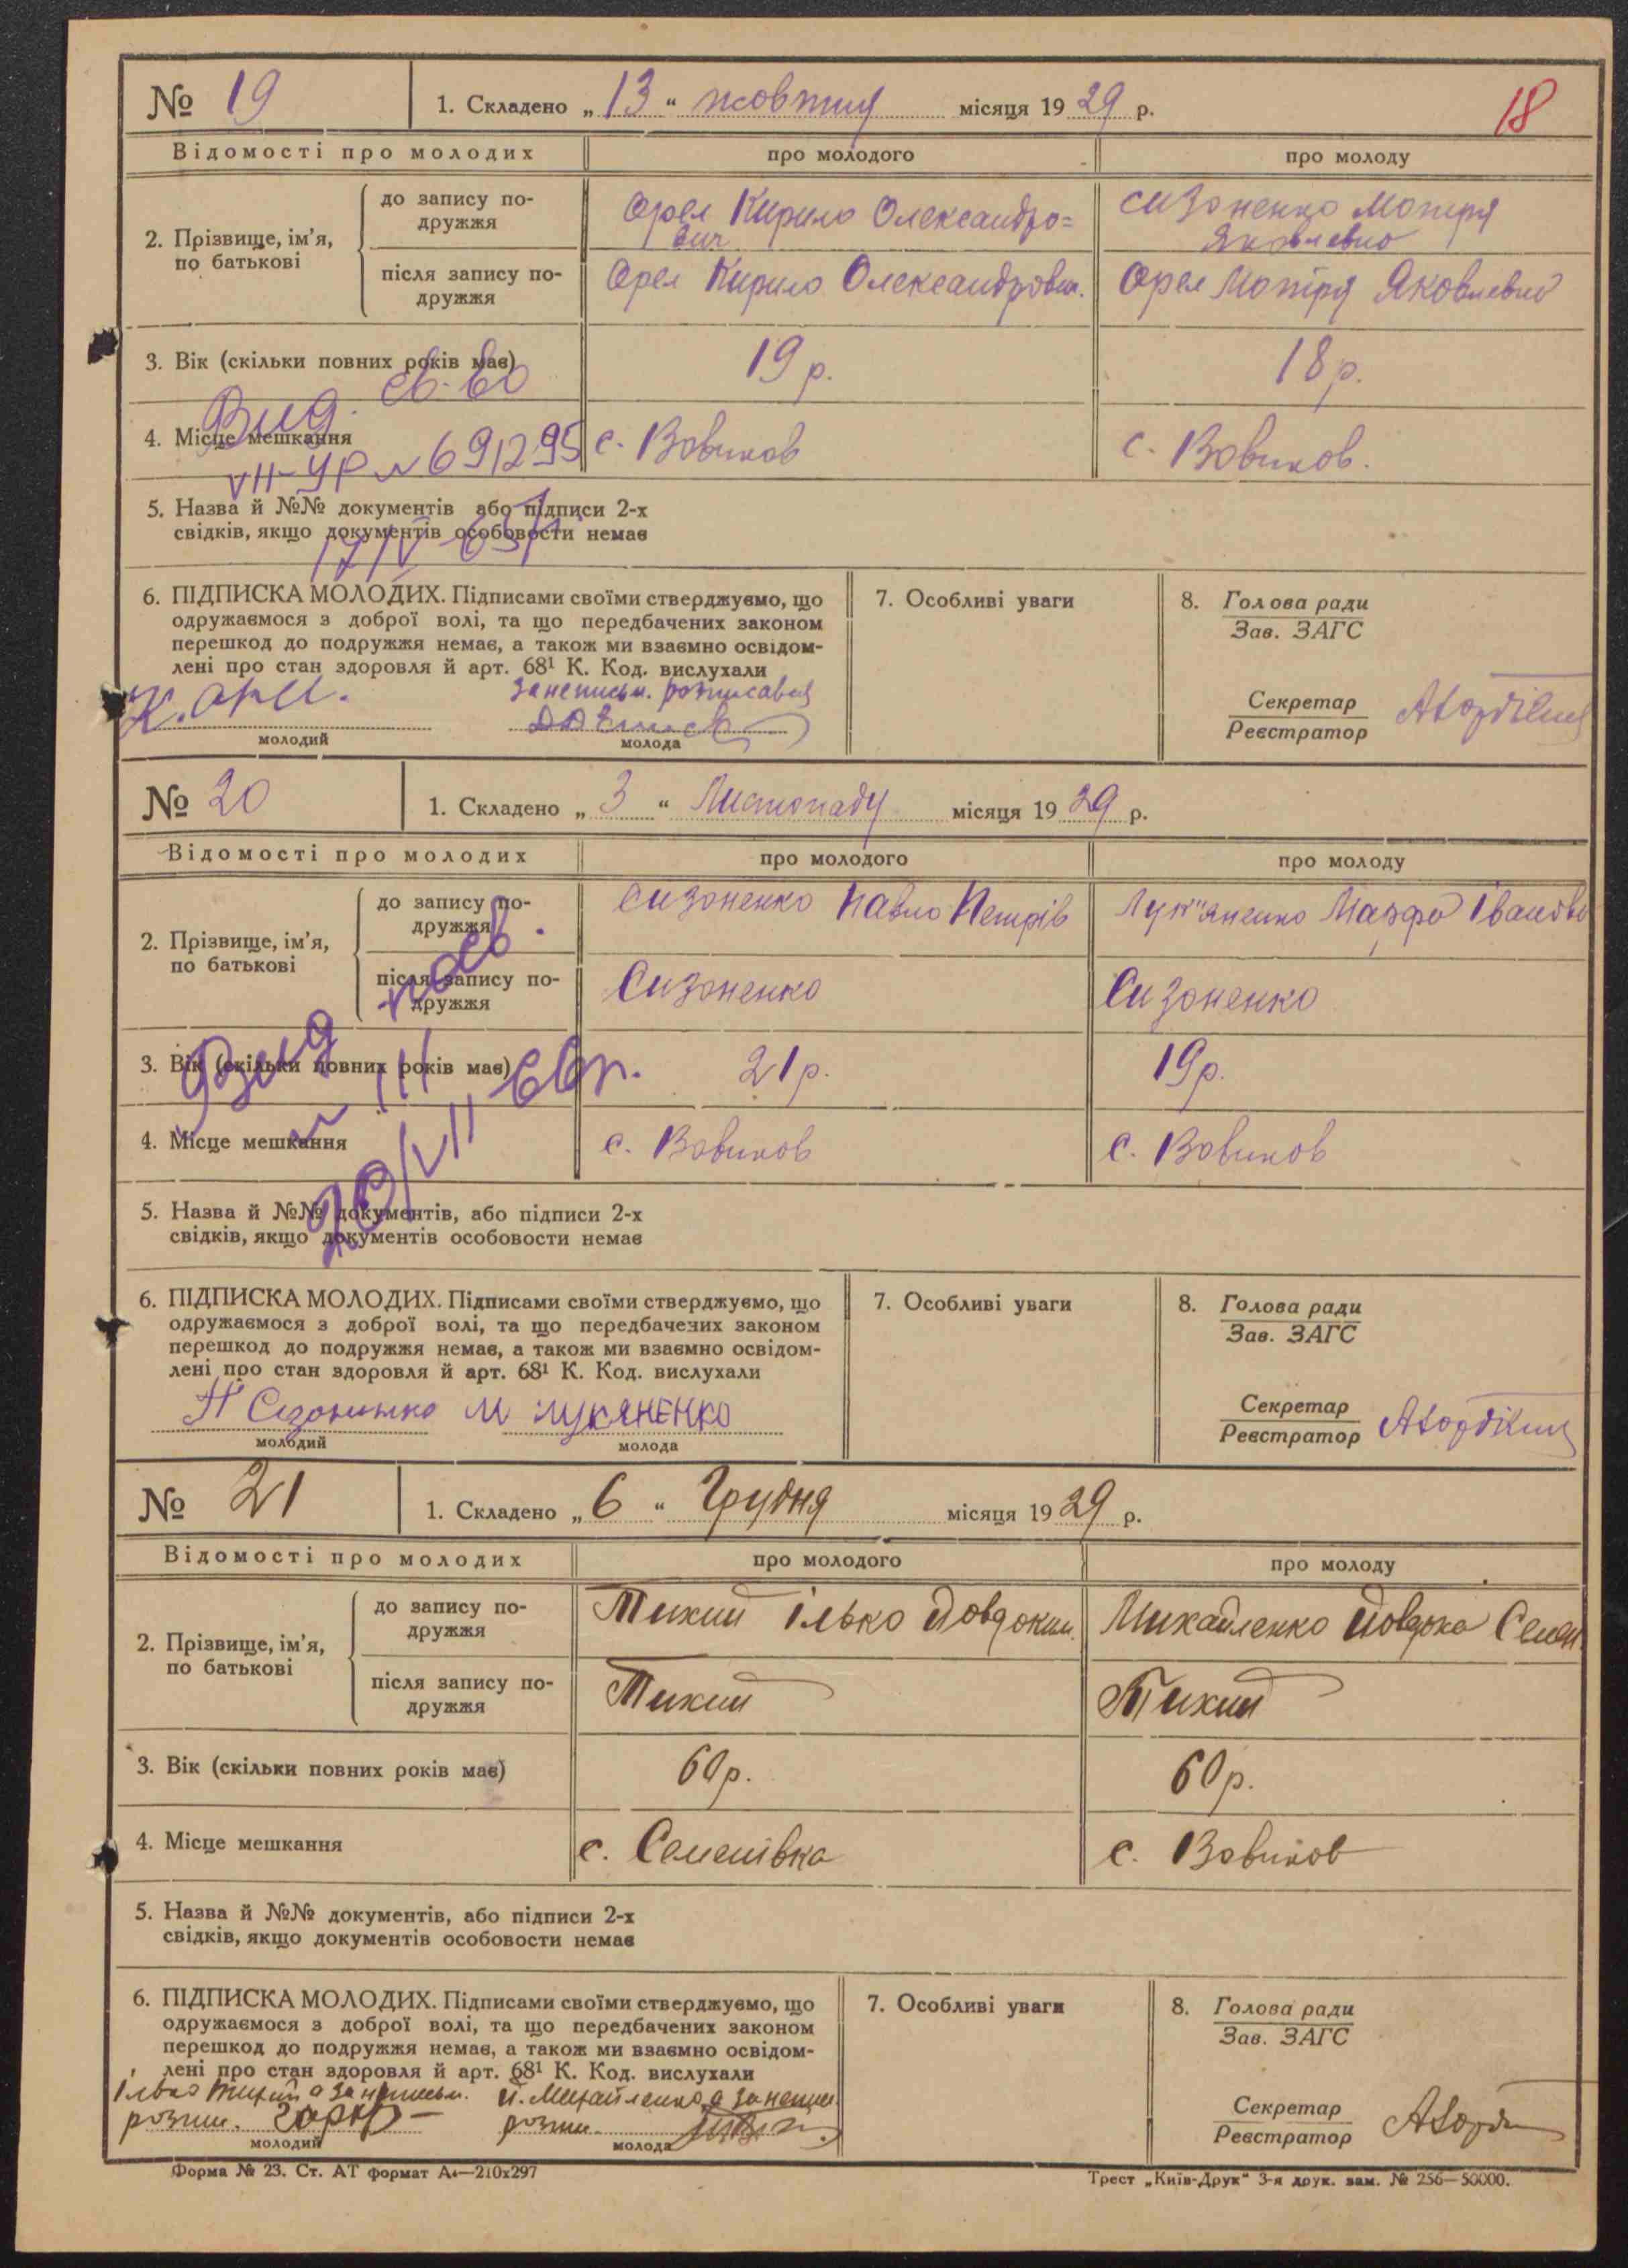 № 19 1. Складено „ 13 “ жовтня місяця 19 29 р. 18
Відомості про молодих про молодого про молоду
2. Прізвище, ім’я, по батькові
до запису по-
дружжя
Орел Кирило Олександро=
вич
Сизоненко Мотря
Яковлевно
після запису по-
дружжя
Орел Кирило Олександрович. Орел Мотря Яковлевно
3. Вік (скільки повних років має) 19 р. 18 р.
Вид. св-во
4. Місце мешкання с. Вовчков с. Вовчков.
VII-УР № 691295
5. Назва й №№ документів або підписи 2-х
свідків, якщо документів особовости немає
17/IV
6. ПІДПИСКА МОЛОДИХ. Підписами своїми стверджуємо, що
одружаємося з доброї волі, та що передбачених законом
перешкод до подружжя немає, а також ми взаємно освідом-
лені про стан здоровля й арт. 68¹ К. Код. вислухали
К. Орел. за неписьм. розписався
молодий молода
7. Особливі уваги
8. Голова ради
Зав. ЗАГС
Секретар
Реєстратор
№ 20 1. Складено „ 3 “ Листопаду місяця 19 29 р.
Відомості про молодих про молодого про молоду
2. Прізвище, ім’я,
по батькові
до запису по-
дружжя
Сизоненко Павло Петрів Лук"яненко Марфа Іванівн
після запису по-
дружжя
Сизоненко Сизоненко
3. Вік (скільки повних років має) 21 р. 19 р.
Вид пов.
4. Місце мешкання с. Вовчков с. Вовчков
20/VII 66 р.
5. Назва й №№ документів, або підписи 2-х
свідків, якщо документів особовости немає
6. ПІДПИСКА МОЛОДИХ. Підписами своїми стверджуємо, що
одружаємося з доброї волі, та що передбачених законом
перешкод до подружжя немає, а також ми взаємно освідом-
лені про стан здоровля й арт. 68¹ К. Код. вислухали
П Сизоненко М лукяненко
молодий молода
7. Особливі уваги
8. Голова ради
Зав. ЗАГС
Секретар
Реєстратор
№ 21 1. Складено „ 6 “ Грудня місяця 19 29 р.
Відомості про молодих про молодого про молоду
2. Прізвище, ім’я,
по батькові
до запису по-
дружжя
Тихий Ілько Йовдоким. Михайленко Йовдоха Семен.
після запису по-
дружжя
Тихий Тихий
3. Вік (скільки повних років має) 60 р. 60 р.
4. Місце мешкання с. Семенівка с. Вовчков
5. Назва й №№ документів, або підписи 2-х
свідків, якщо документів особовости немає
6. ПІДПИСКА МОЛОДИХ. Підписами своїми стверджуємо, що
одружаємося з доброї волі, та що передбачених законом
перешкод до подружжя немає, а також ми взаємно освідом-
лені про стан здоровля й арт. 68¹ К. Код. вислухали
Ілько Тихий а за неписьм. Й. Михайленко, а за неписм.
розпис. розпис.
молодий молода
7. Особливі уваги
8. Голова ради
Зав. ЗАГС
Секретар
Реєстратор
Форма № 23. Ст. АТ формат А₄—210х297 Трест „Київ-Друк“ 3-я друк. зам. № 256—50000.